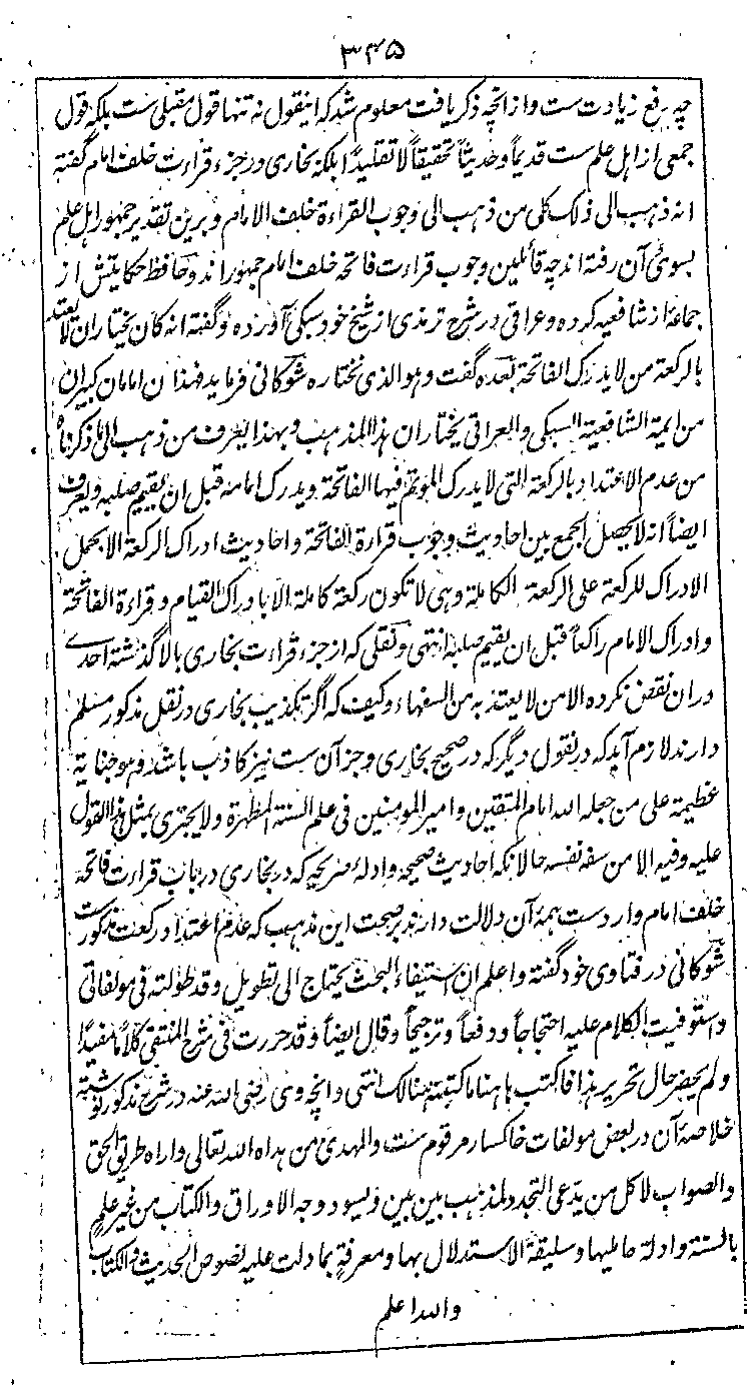 ۳۳۵
چه رفع زیادت ست و از انچه ذکر یافت معلوم شد که اینقول نه تنها قول مقبلی ست بلکه قول
جمعی از اهل علم ست قدیماً و حدیثاً تحقیقاً لا تقلیداً بلکه بخاری در جزء قراءت خلف امام گفته
انه ذهب الی ذلک کل من ذهب الی وجوب القراءة خلف الامام و برین تقدیر جمهور اهل علم
بسوی آن رفته اند چه قائلین وجوب قراءت فاتحه خلف امام جمهور اند و حافظ حکایتش از
جماعة از شافعیه کرده و عراقی در شرح ترمذی از شیخ خود سبکی آورده و گفته انه کان یختار ان لا یعتد
بالرکعة من لا یدرک الفاتحة بعده گفت و هو الذی نختاره شوکانی فرماید فهذان امامان کبیران
من ایمة الشافعیة السبکی والعراقی یختاران هذا المذهب و بهذا یعرف من ذهب الی ما ذکرناه
من عدم الاعتداد بالرکعة التی لا یدرک الموتم فیها الفاتحة و یدرک امامه قبل ان یقیم صلبه و یعرف
ایضاً انه لا یحصل الجمع بین احادیث وجوب قراءة الفاتحة و احادیث ادراک الرکعة الا بحمل
الادراک للرکعة علی الرکعة الکاملة وهی لا تکون رکعة کاملة الا بادراک القیام و قراءة الفاتحة
و ادراک الامام راکعاً قبل ان یقیم صلبه انتهی و نقلی که از جزء قراءت بخاری بالا گذشته احدے
دران نقض نکرده الا من لا یعتد به من السفهاء و کیف که اگر تکذیب بخاری در نقل مذکور مسلم
دارند لازم آید که در نقول دیگر که در صحیح بخاری و جز آن ست نیز کاذب باشد و هو جنایة
عظیمة علی من جعله الله امام المتقین و امیر المومنین فی علم السنة المطهرة ولا یجتری بمثل هذا القول
علیه و فیه الا من سفه نفسه حالانکه احادیث صحیحه و ادلۀ صریحه که در بخاری در باب قراءت فاتحه
خلف امام وارد ست همۀ آن دلالت دارند بر صحت این مذهب که عدم اعتداد رکعت مذکورست
شوکانی در فتاوی خود گفته و اعلم ان استیفاء البحث یحتاج الی تطویل وقد طولته فی مولفاتی
واستوفیت الکلام علیه احتجاجاً و دفعاً و ترجیحاً و قال ایضاً وقد حررت فی شرح المنتقی کلاماً مفیداً
ولم یحضر حال تحریر هذا فاکتب هاهنا ما کتبته هنالک انتهی و انچه وی رضی الله عنه در شرح مذکور نوشته
خلاصۀ آن در بعض مولفات خاکسار مرقوم ست والمهدی من هداه الله تعالی و اراه طریق الحق
والصواب لا کل من یدعی التجدد لمذهب بین بین و یسود وجه الاوراق والکتاب من غیر علم
بالسنة و ادلة حاملیها و سلیقة الاستدلال بها و معرفة بما دلت علیه نصوص الحدیث والکتاب
والله اعلم